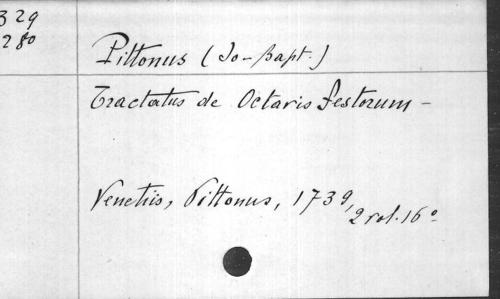 329
280
Pittonus (Jo-Bapt.)
Tractatus de Octavis festorum -
Venetiis, Pittonus, 1739,
2 vol. 16°